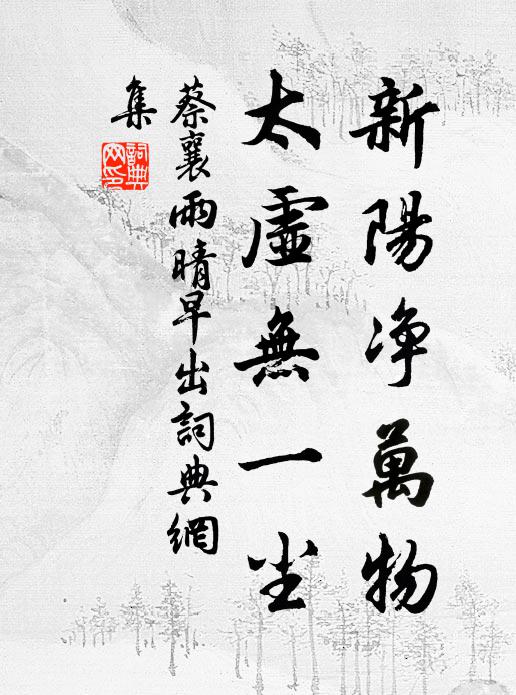 新陽净萬物
太虛無一尘
蔡襄雨晴早出詞典網
集
詞典网印